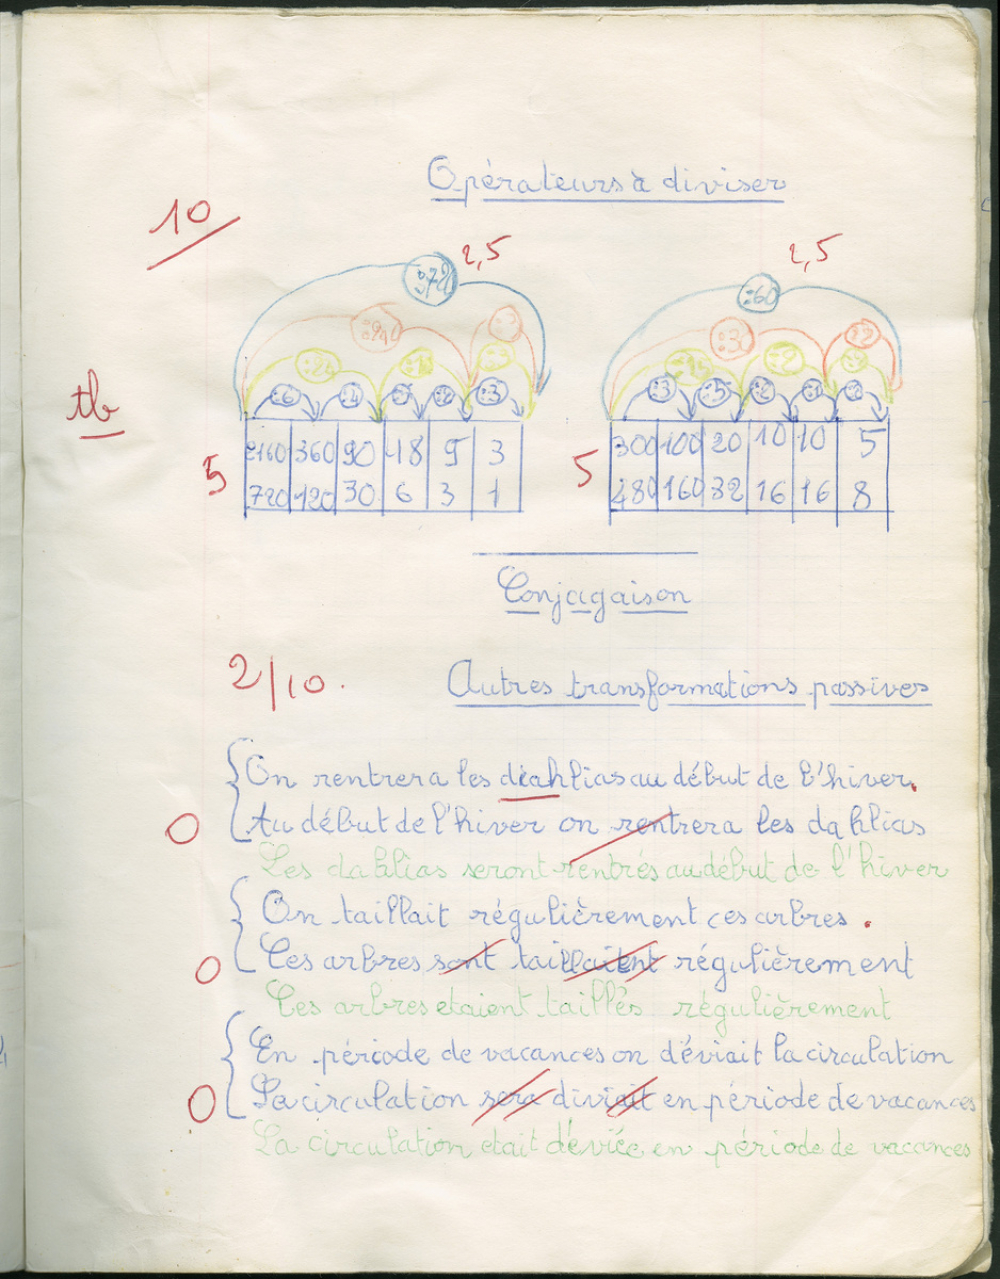 Opérateurs à diviser
10
2,5
2,5
:60
:6
:3
tb
2160 360 90 48 9 3
300 100 20 10 10 5
5
5
720 120 30 6 3 1
480 160 32 16 16 8
Conjagaison
2/10.
Autres transformations passives
On rentrera les diahlias au début de l'hiver.
0
Au début de l'hiver on rentrera les dahlias
Les dahlias seront rentrés au début de l'hiver
On taillait régulièrement ces arbres.
0
Ces arbres sont taillaitent régulièrement
Ces arbres etaient taillés régulièrement
En période de vacances on déviait la circulation
0
La circulation sera diviait en période de vacances
La circulation etait déviée en période de vacances